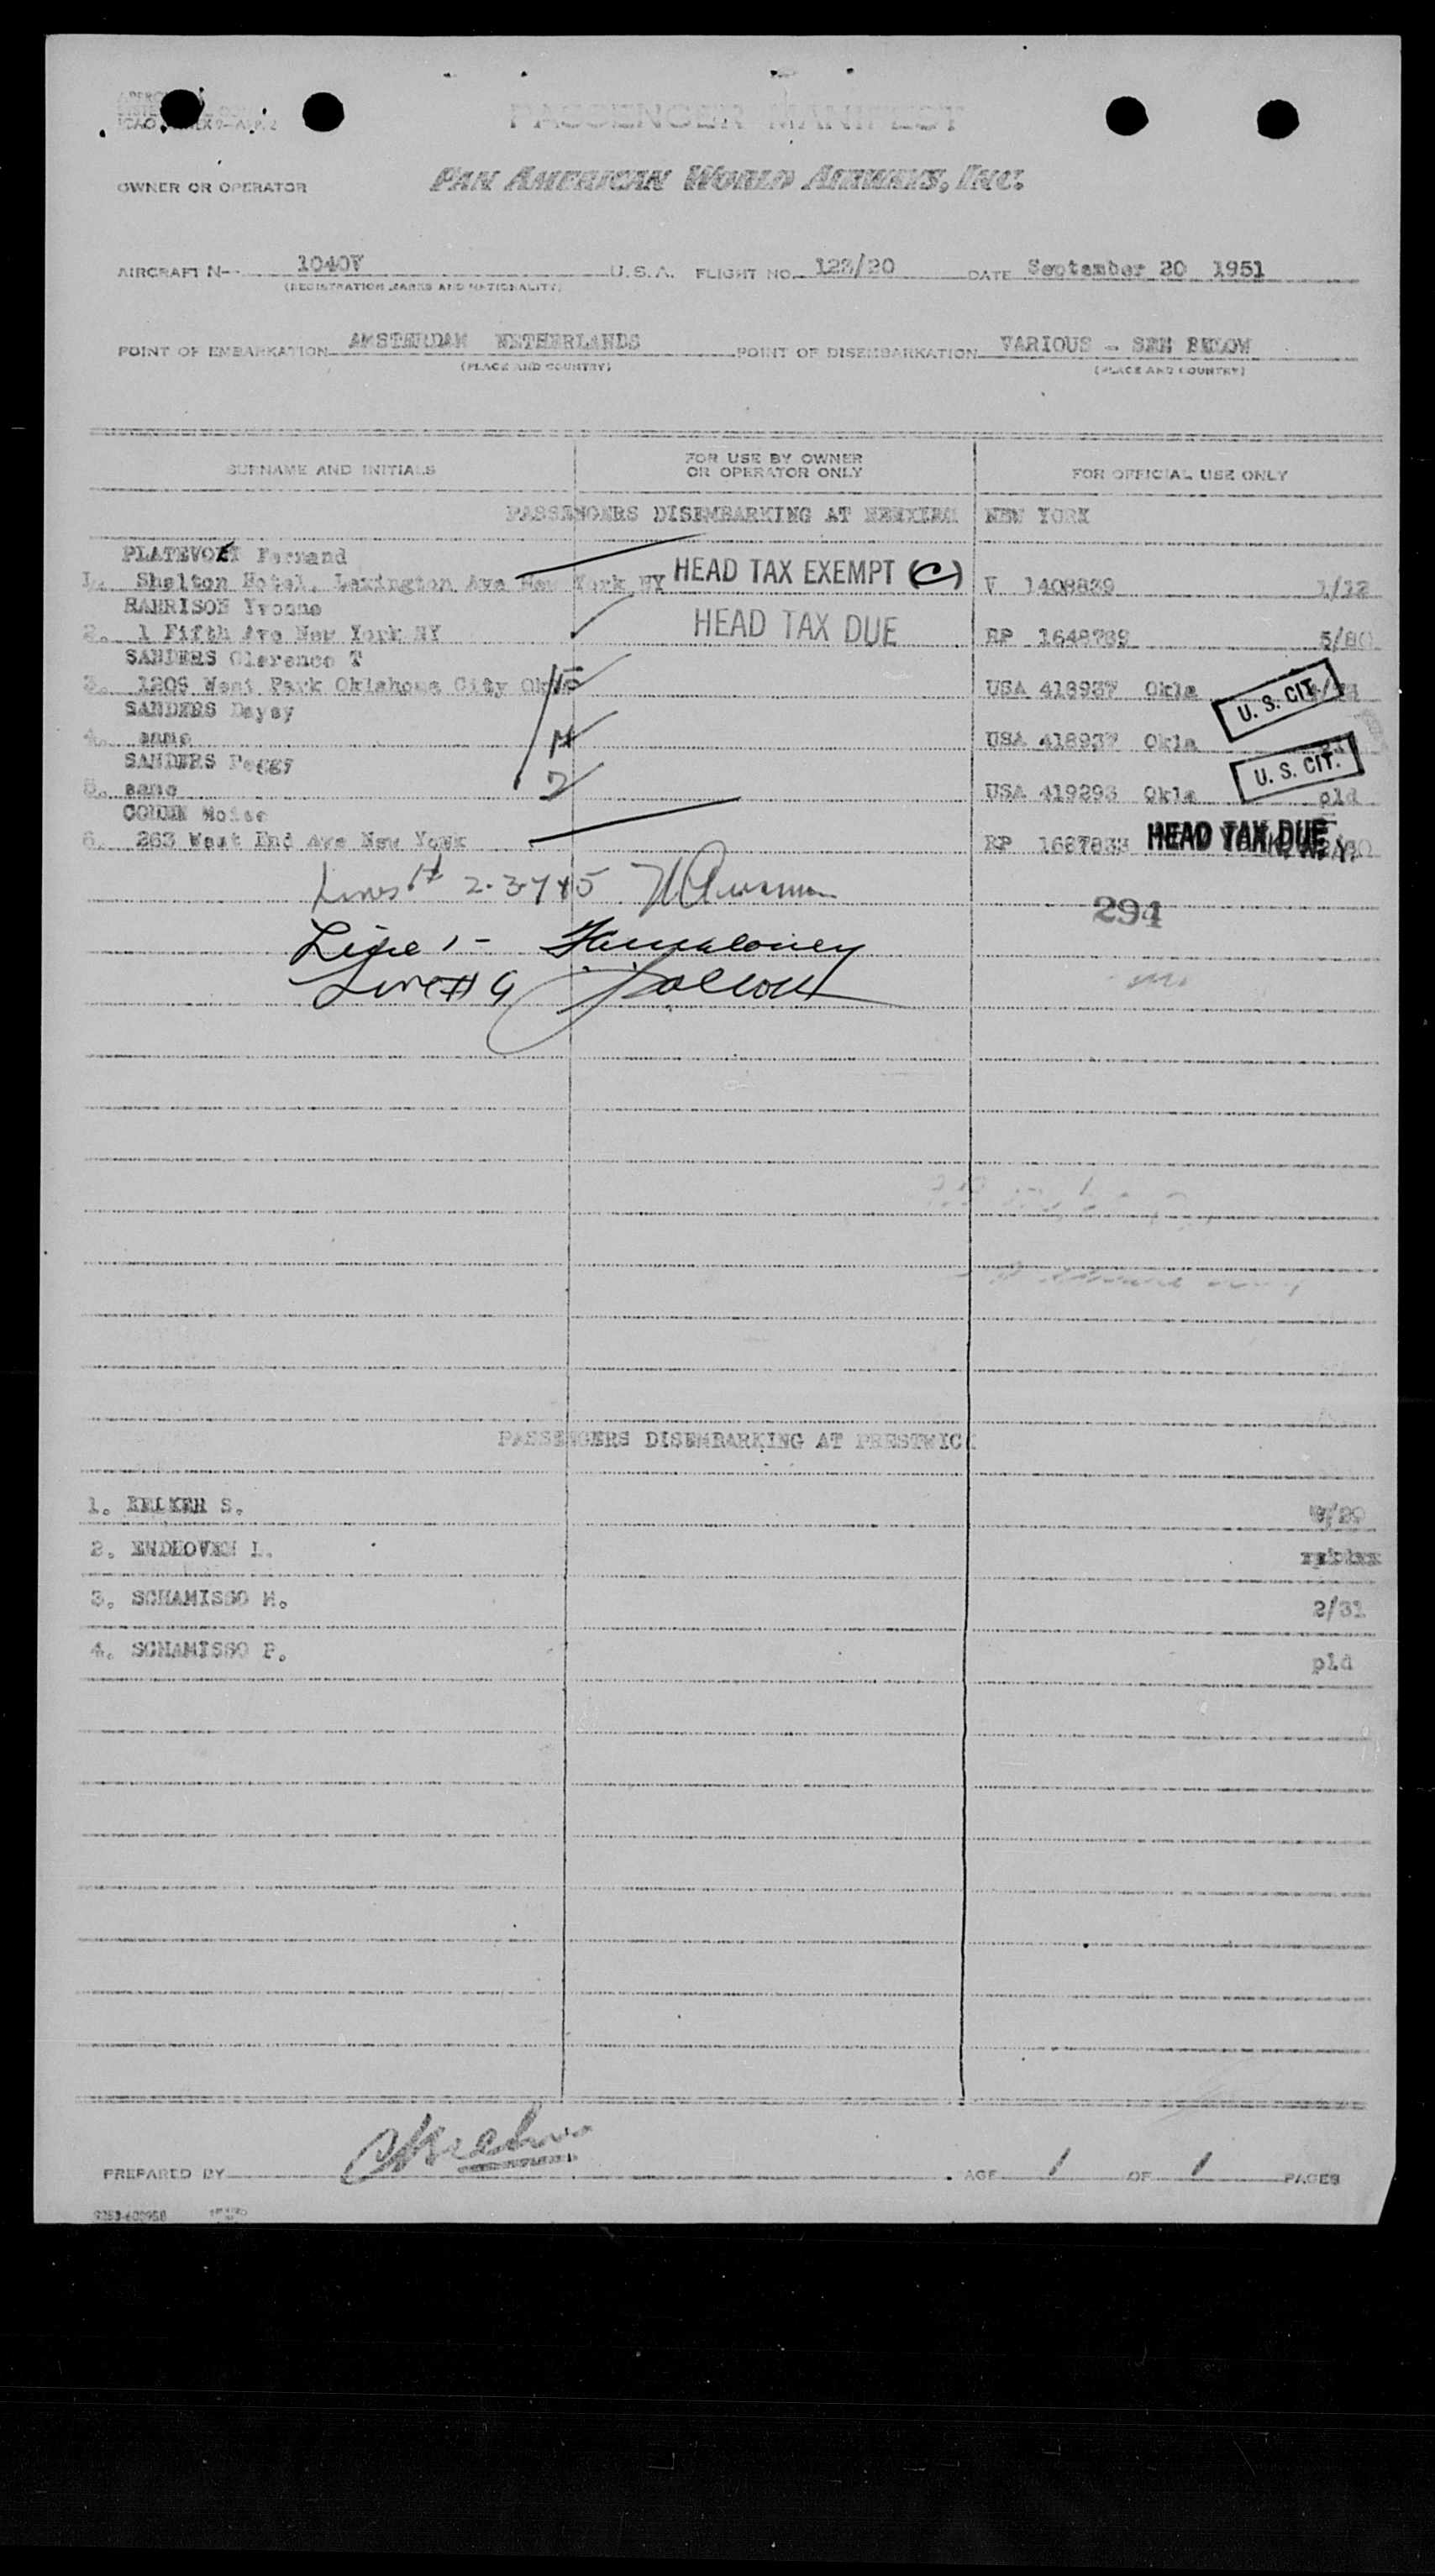 PASSENGER MANIFEST
OWNER OR OPERATOR PAN AMERICAN WORLD AIRWAYS, INC.
AIRCRAFT N- 1040V U.S.A. FLIGHT NO. 123/20 DATE September 20 1951
(REGISTRATION MARKS AND NATIONALITY)
POINT OF EMBARKATION AMSTERDAM NETHERLANDS POINT OF DISEMBARKATION VARIOUS - SEE BELOW
(PLACE AND COUNTRY) (PLACE AND COUNTRY)
SURNAME AND INITIALS FOR USE BY OWNER OR OPERATOR ONLY FOR OFFICIAL USE ONLY
PASSENGERS DISEMBARKING AT NEW YORK
PLATEVOET Fernand
1. Shelton Hotel, Lexington Ave New York NY HEAD TAX EXEMPT (C) V 1408839 1/12
HARRISON Yvonne
2. 1 Fifth Ave New York NY HEAD TAX DUE RP 1648789 5/80
SANDERS Clarence T
3. 1209 West Park Oklahoma City Okla USA 418937 Okla U. S. CIT.
SANDERS Daysy
4. same USA 418937 Okla
SANDERS Peggy
5. same USA 419293 Okla U. S. CIT. pld
COHEN Moise
6. 263 West End Ave New York RP 1687833 HEAD TAX DUE
Lines # 2-3-4+5
294
Line 1-
Line #
PASSENGERS DISEMBARKING AT PRESTWICK
1. S.
2. ENDHOVEN L.
3. SCHAMISSO M. 2/31
4. SCHAMISSO P. pld
PREPARED BY PAGE 1 OF 1 PAGES